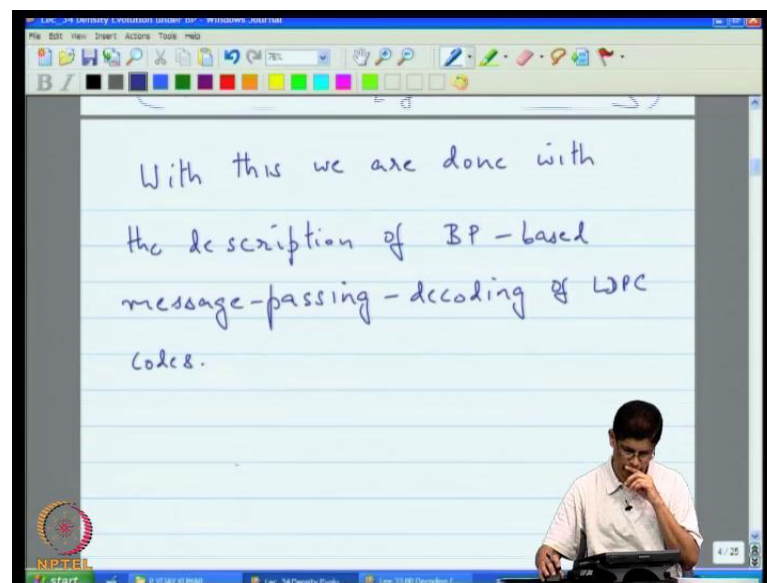 Lec_34 Density Evolution under BP - Windows Journal
File Edit View Insert Actions Tools Help
76%
B I
With this we are done with
the description of BP-based
message-passing-decoding of LDPC
codes.
4 / 25
NPTEL
start
P VIJAY KUMAR
Lec_34 Density Evolu...
Lec_33 BP Decoding (...